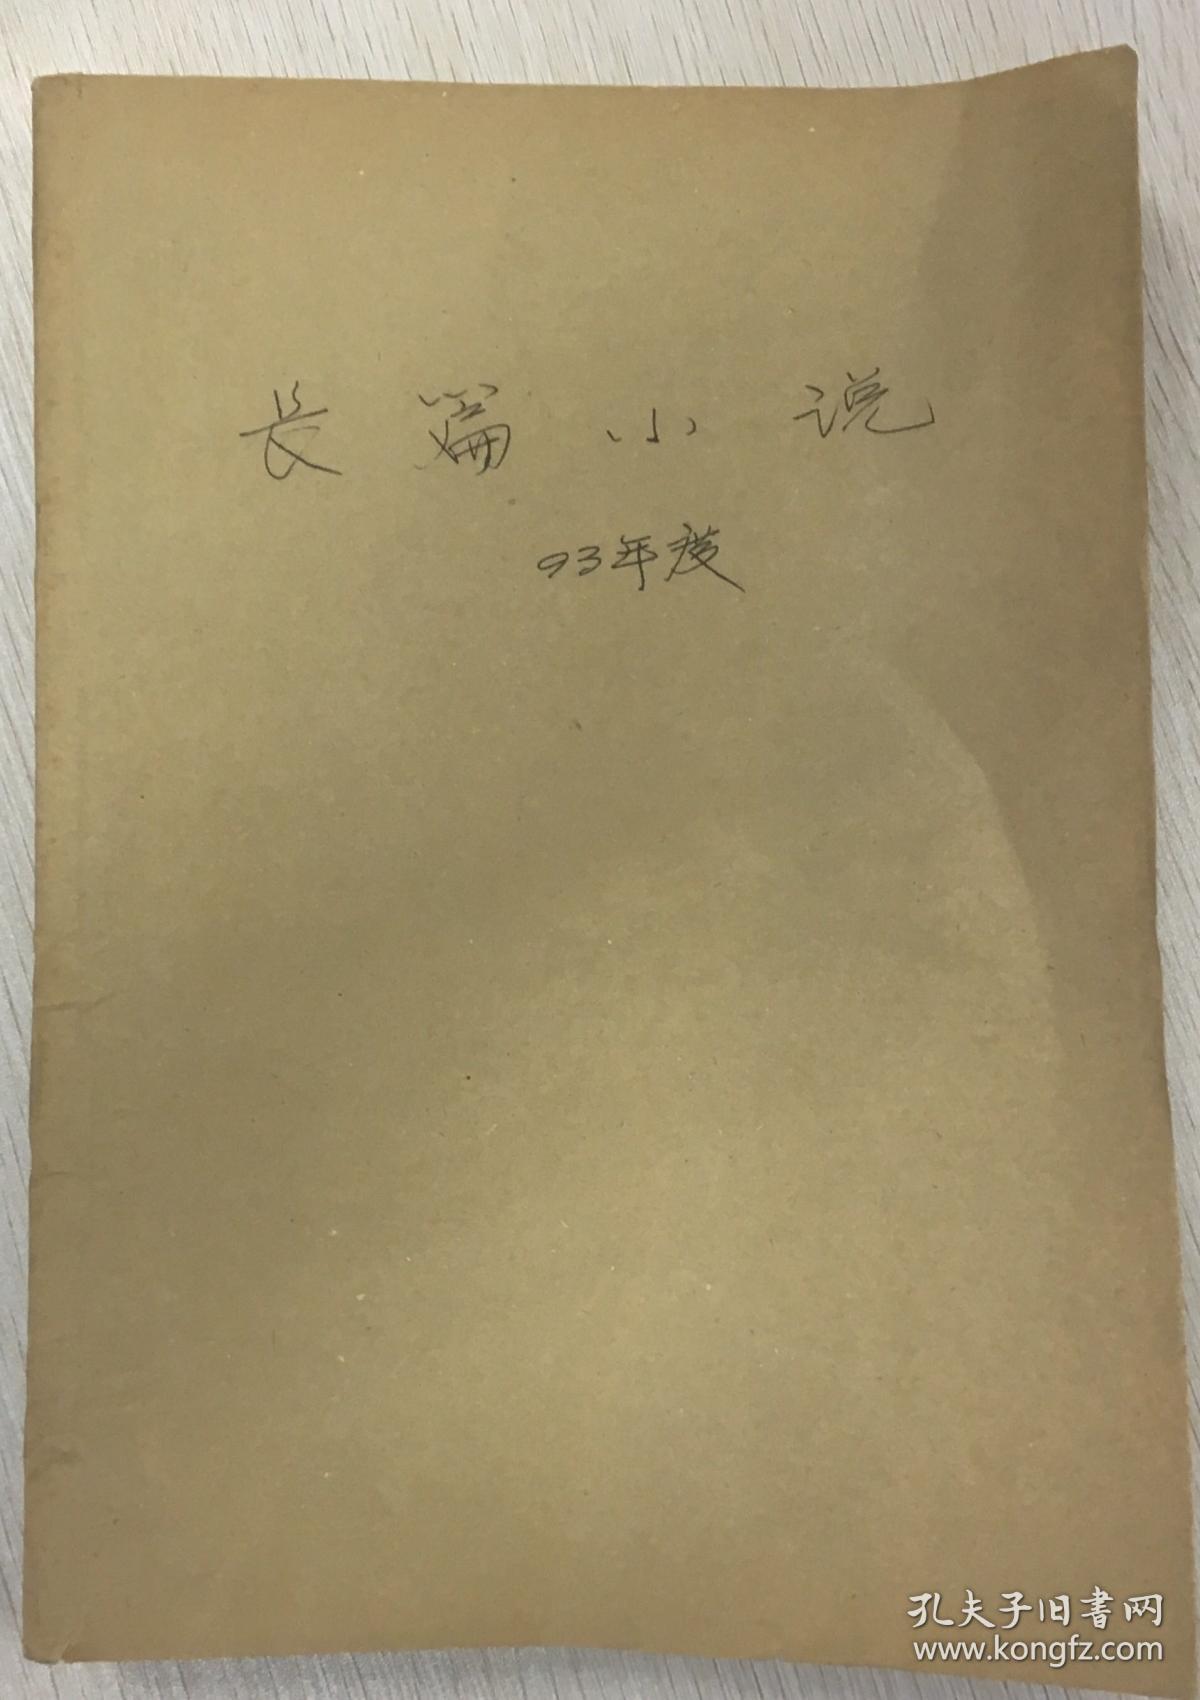 长篇小说
93年度
孔夫子旧書网
www.kongfz.com